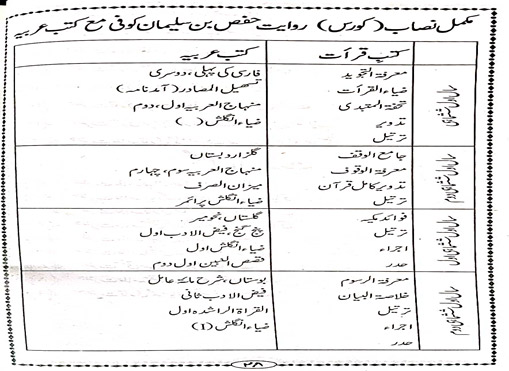 مکمل نصاب (کورس) روایت حفص بن سلیمان کوفی مع کتب عربیہ
کتب قرأت
کتب عربیہ
معرفۃ التجوید
ضیاء القرأت
تحفۃ المبتدی
تدویر
ترتیل
فارسی کی پہلی، دوسری
تسھیل المصادر (آمدنامہ)
منہاج العربیہ اول، دوم
ضیاء انگلش ( )
جامع الوقف
معرفۃ الوقوف
تدویر کامل قرآن
ترتیل
گلزار دبستاں
منہاج العربیہ سوم، چہارم
میزان الصرف
ضیاء انگلش پرائمر
فوائد مکیہ
ترتیل
اجراء
حدر
گلستاں، نحومیر
پنج گنج، فیض الادب اول
ضیاء انگلش اول
قصص النبیین اول دوم
معرفۃ الرسوم
خلاصۃ البیان
ترتیل
اجراء
حدر
بوستاں، شرح مائۃ عامل
فیض الادب ثانی
القراۃ الراشدہ اول
ضیاء انگلش (1)
۲۸